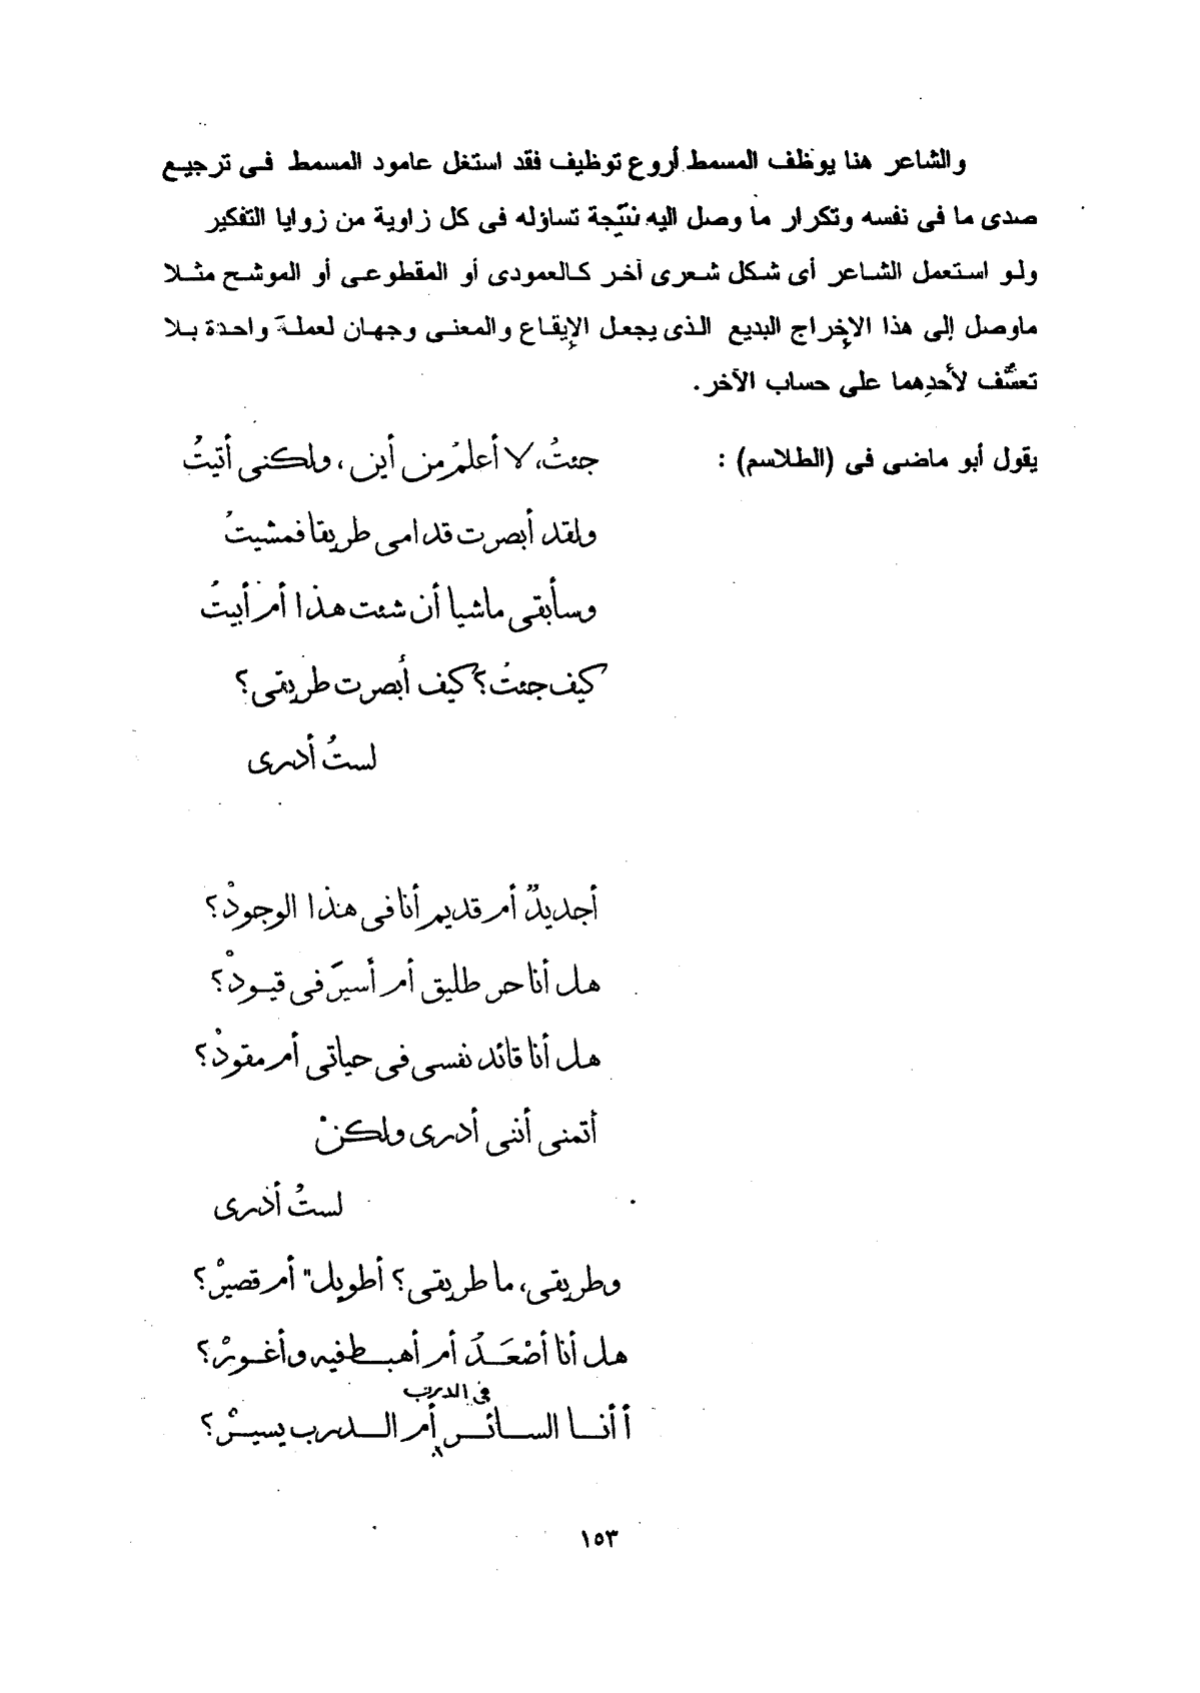 والشاعر هنا يوظف المسمط أروع توظيف فقد استغل عامود المسمط فى ترجيع
صدى ما فى نفسه وتكرار ما وصل اليه نتيجة تساؤله فى كل زاوية من زوايا التفكير
ولو استعمل الشاعر أى شكل شعرى آخر كالعمودى أو المقطوعى أو الموشح مثلا
ماوصل إلى هذا الإخراج البديع الذى يجعل الإيقاع والمعنى وجهان لعملة واحدة بلا
تعسُّف لأحدِهما على حساب الآخر .
يقول أبو ماضى فى (الطلاسم) : جئتُ، لا أعلمُ من أين ، ولكنى أتيتُ
ولقد أبصرت قدامى طريقا فمشيتُ
وسأبقى ماشيا أن شئت هذا أم أبيتُ
كيف جئتُ؟ كيف أبصرت طريقى؟
لستُ أدرى
أجديدٌ أم قديم أنا فى هذا الوجودْ؟
هل أنا حر طليق أم أسيرَ فى قيودْ؟
هل أنا قائد نفسى فى حياتى أم مقودْ؟
أتمنى أننى أدرى ولكنْ
لستُ أدرى
وطريقى، ما طريقى؟ أطويل" أم قصيرْ؟
هل أنا أصْعَدُ أم أهبط فيه وأغورْ؟
فى الدرب
أأنا السائر أم الدرب يسيرْ؟
١٥٣